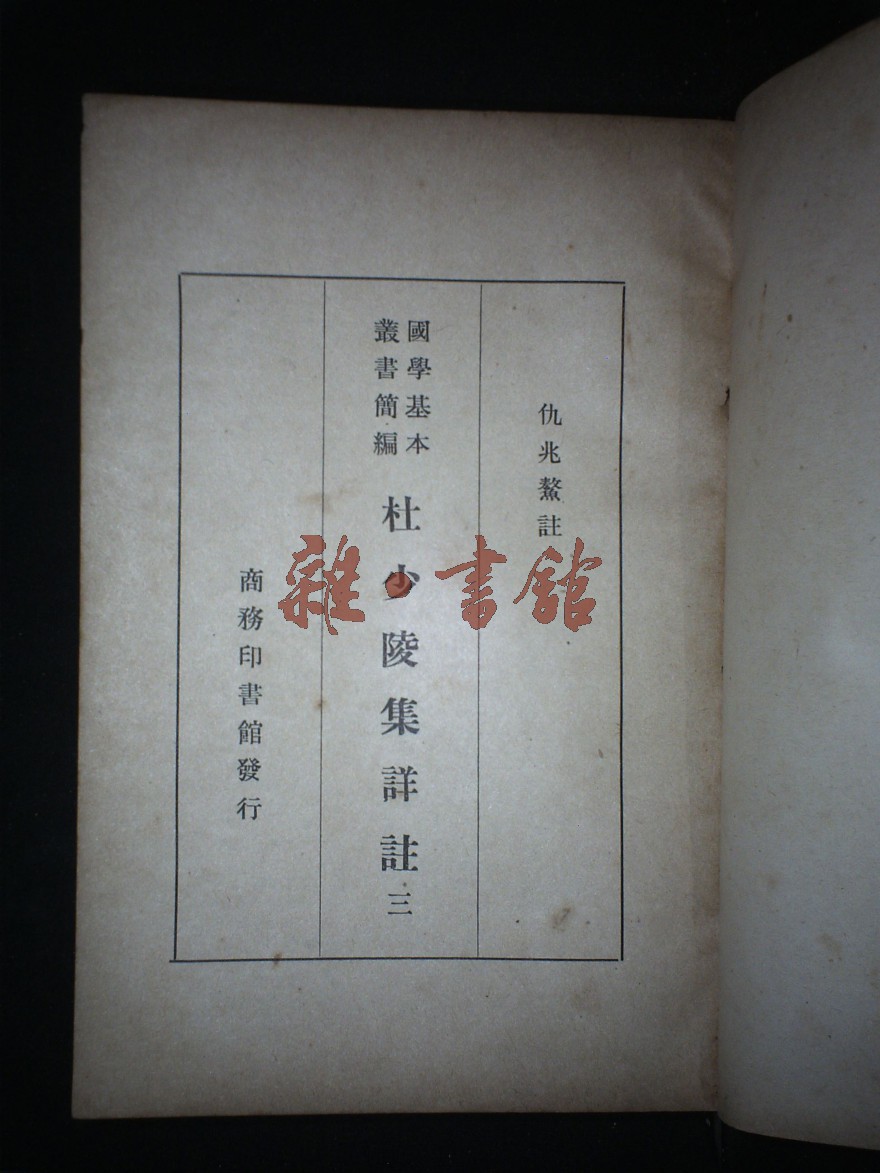 仇兆鰲註
國學基本
叢書簡編
杜少陵集詳註 三
商務印書館發行
雜書館